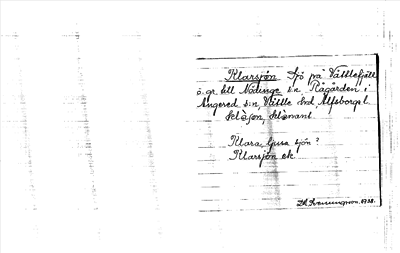 Klarsjön Sjö på Vättlefjäll
ö. gr. till Nödinge sn, Rågården i
Angered sn Vättle hd Älfsborgs l.
Klara, ljusa sjön?
Klarsjön ek
1938.